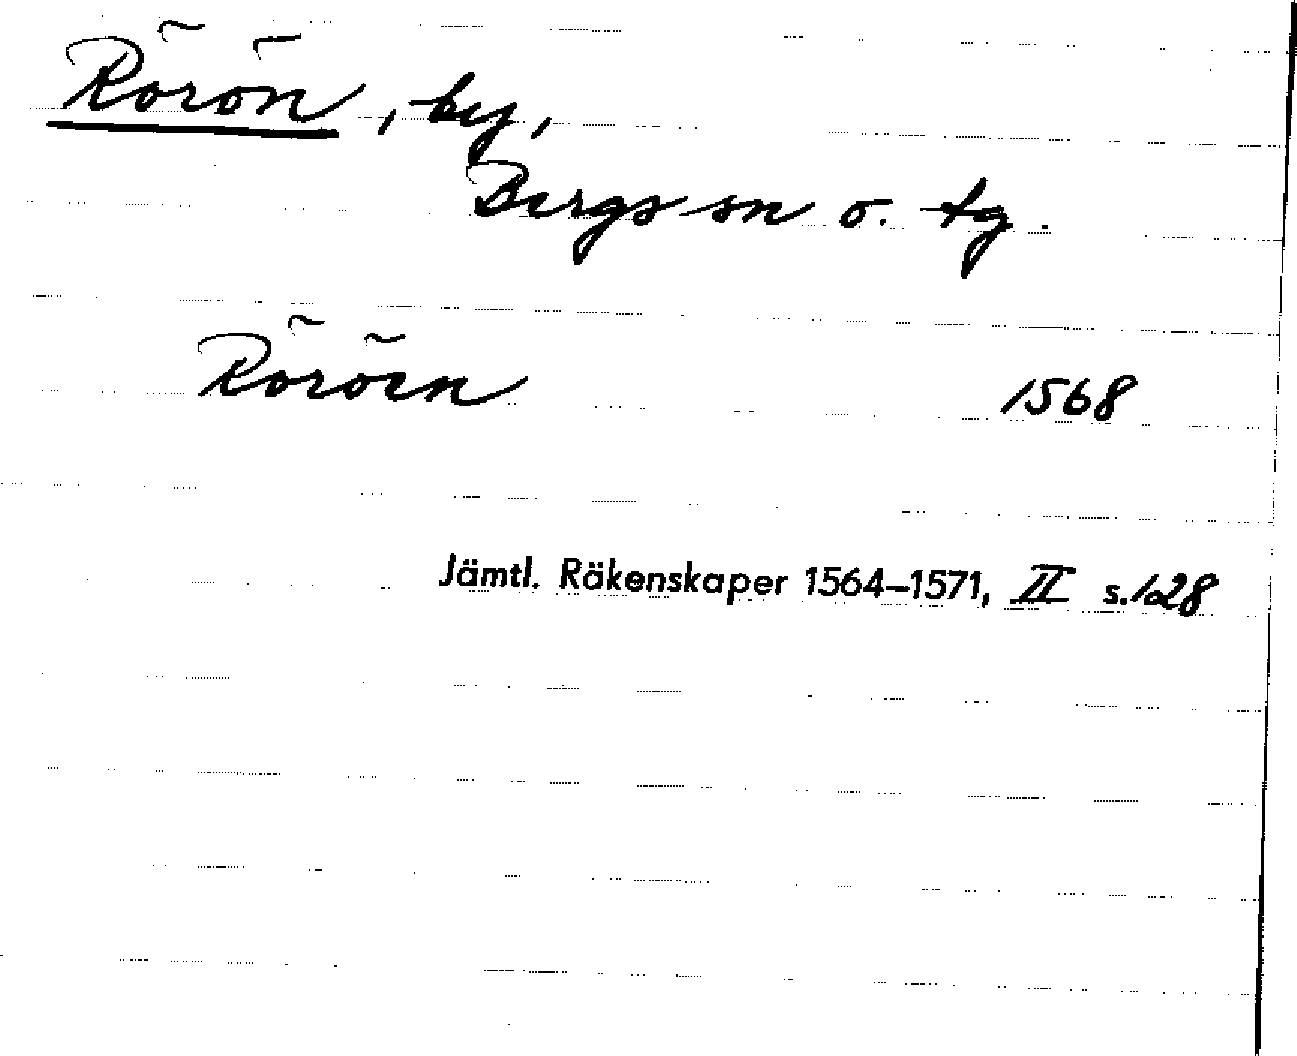 Rörön, by,
Bergs sn o. tg.
Röröen 1568
Jämtl. Räkenskaper 1564–1571, II s. 128